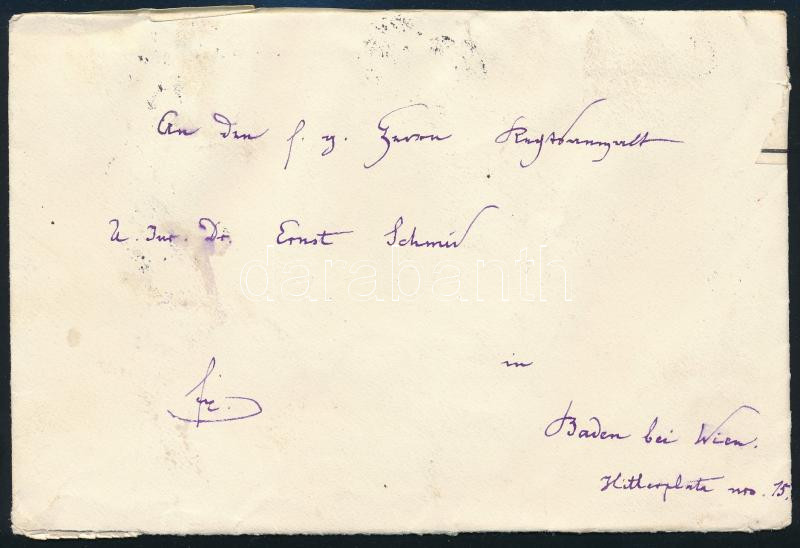 An den f. g. Herrn Rechtsanwalt
U. Jur. Dr. Ernst Schmid
darabanth
in
Baden bei Wien.
Hitlerplatz nro. 15.